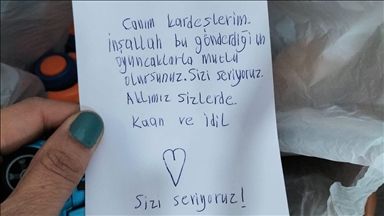 Canım kardeşlerim.
İnşallah bu gönderdiğim
oyuncaklarla mutlu
olursunuz. Sizi seviyoruz.
Aklımız sizlerde.
Kaan ve idil
Sizi seviyoruz!